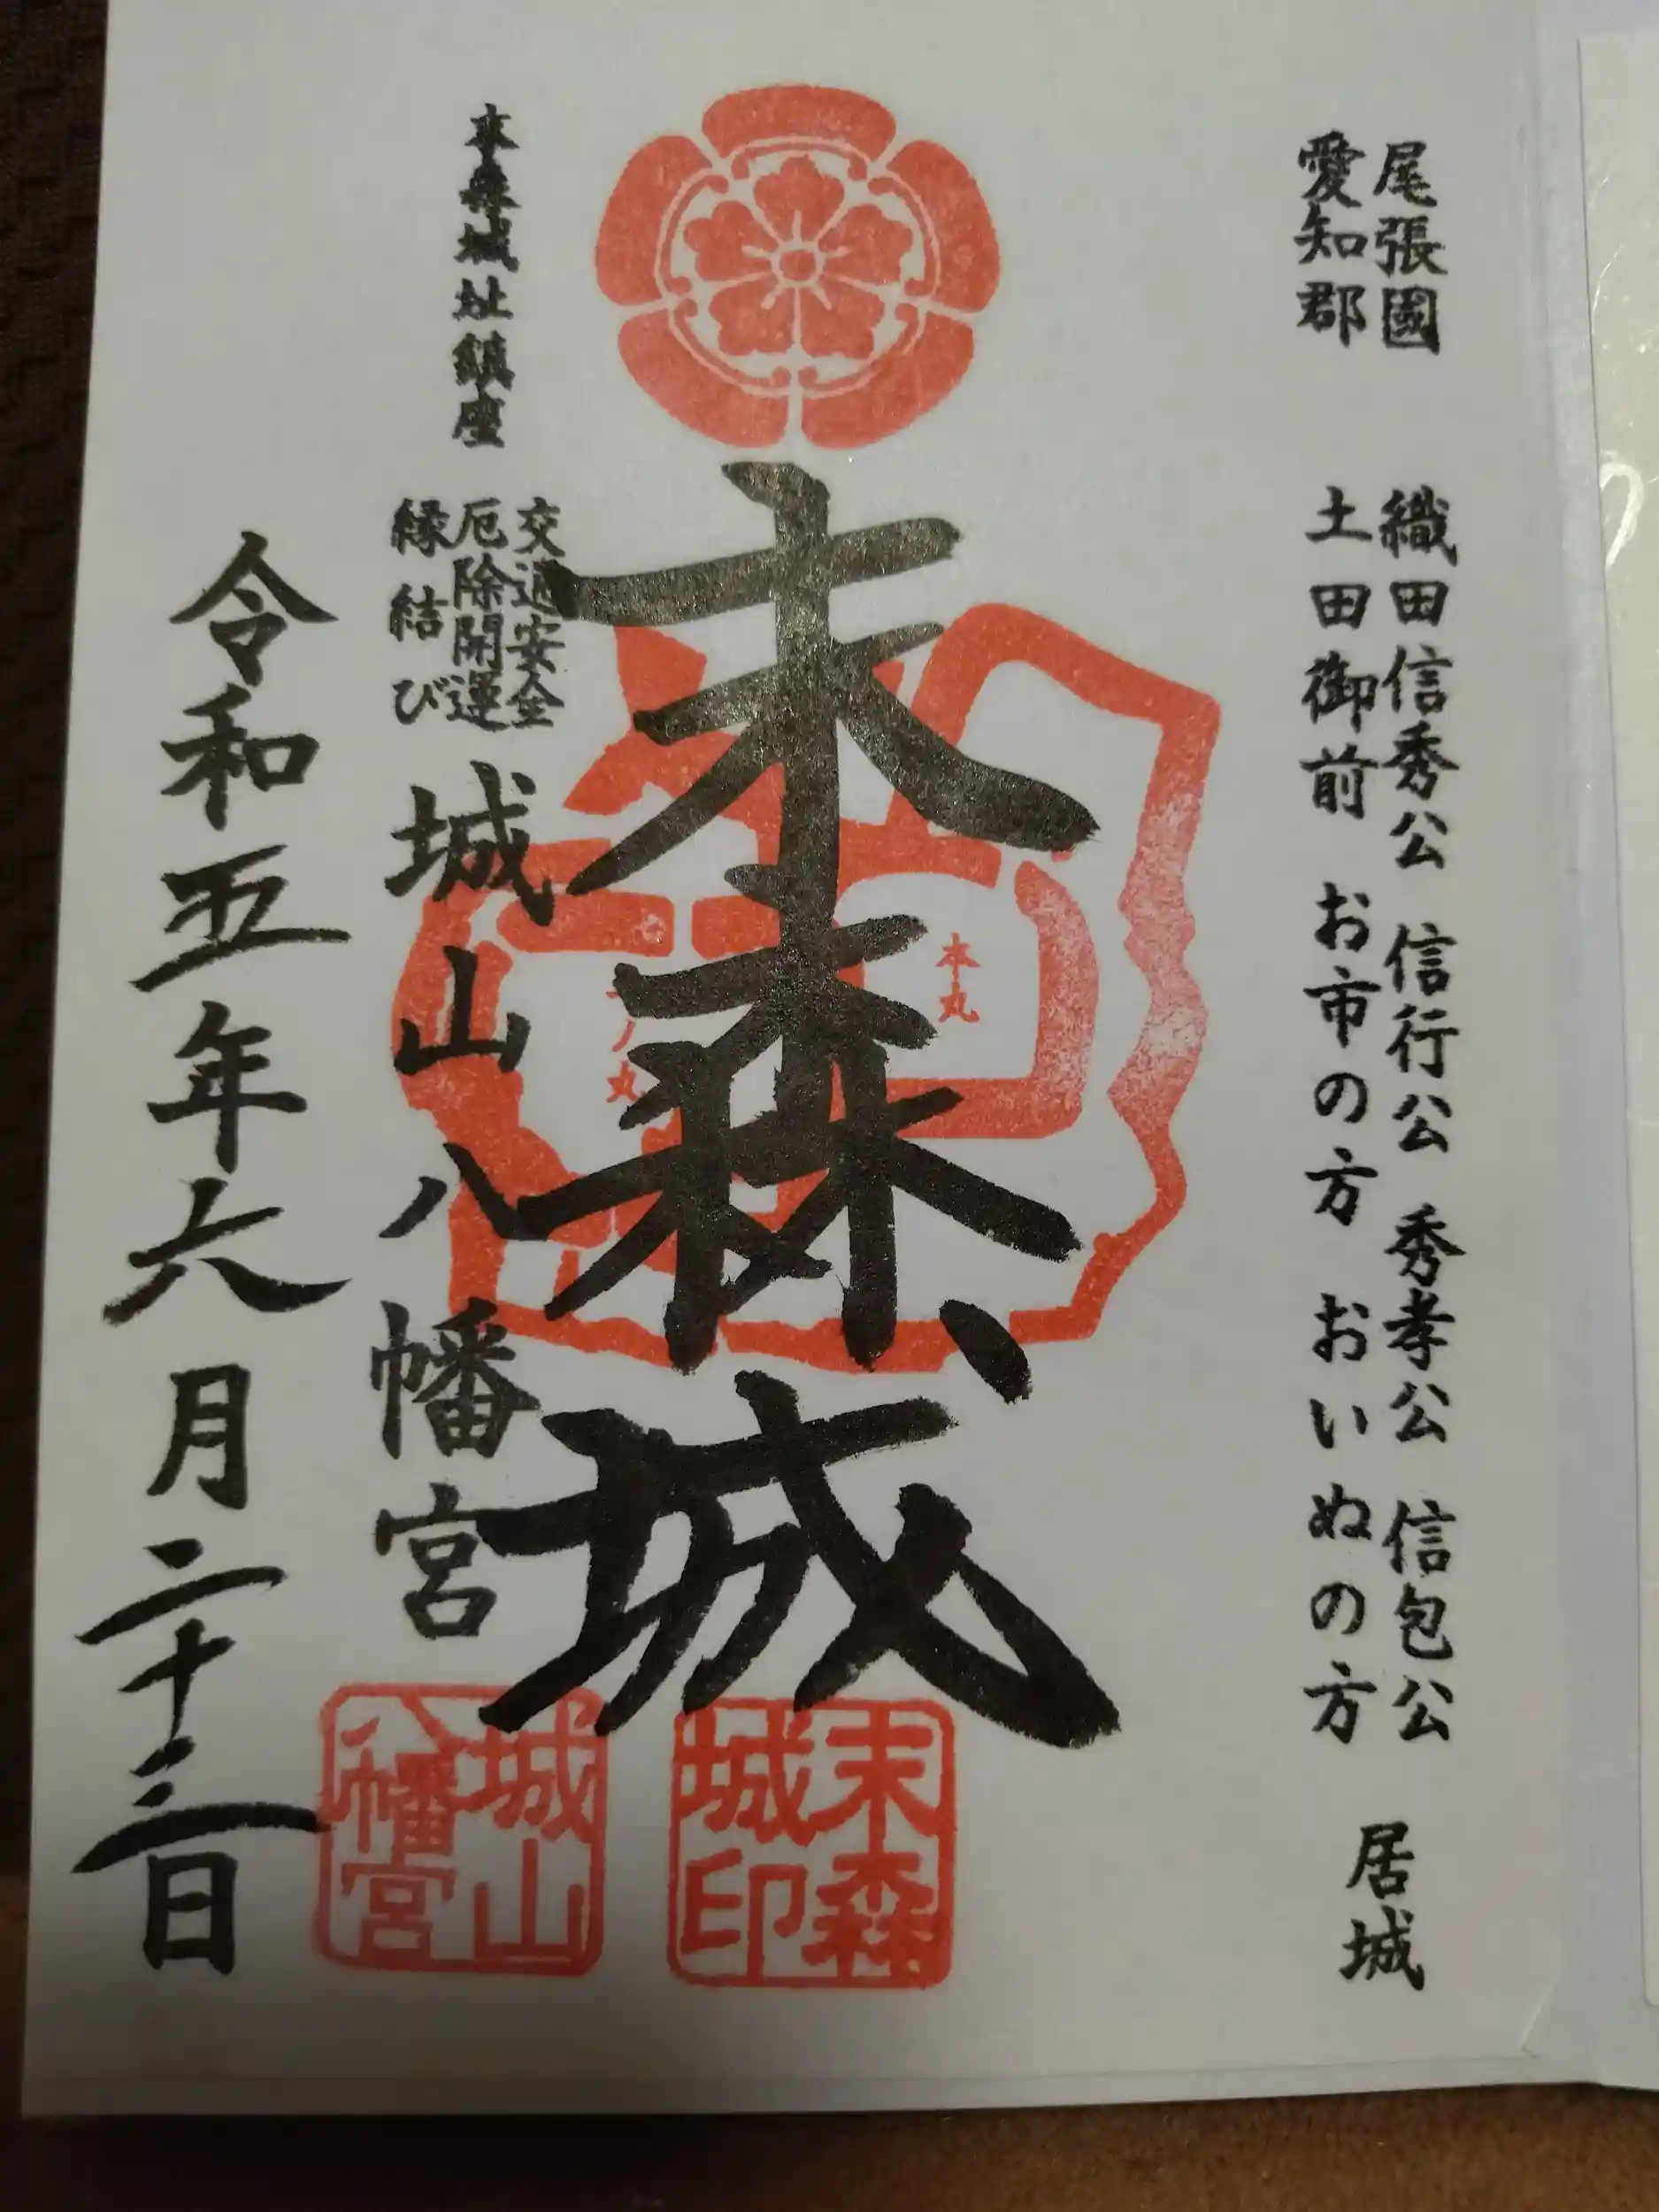 尾張國
愛知郡
織田信秀公 信行公 秀孝公 信包公
土田御前 お市の方 おいぬの方
居城
末森城
本丸
二ノ丸
末森城印
末森城址鎮座
交通安全
厄除開運
縁結び
城山八幡宮
城山八幡宮
令和五年六月二十三日